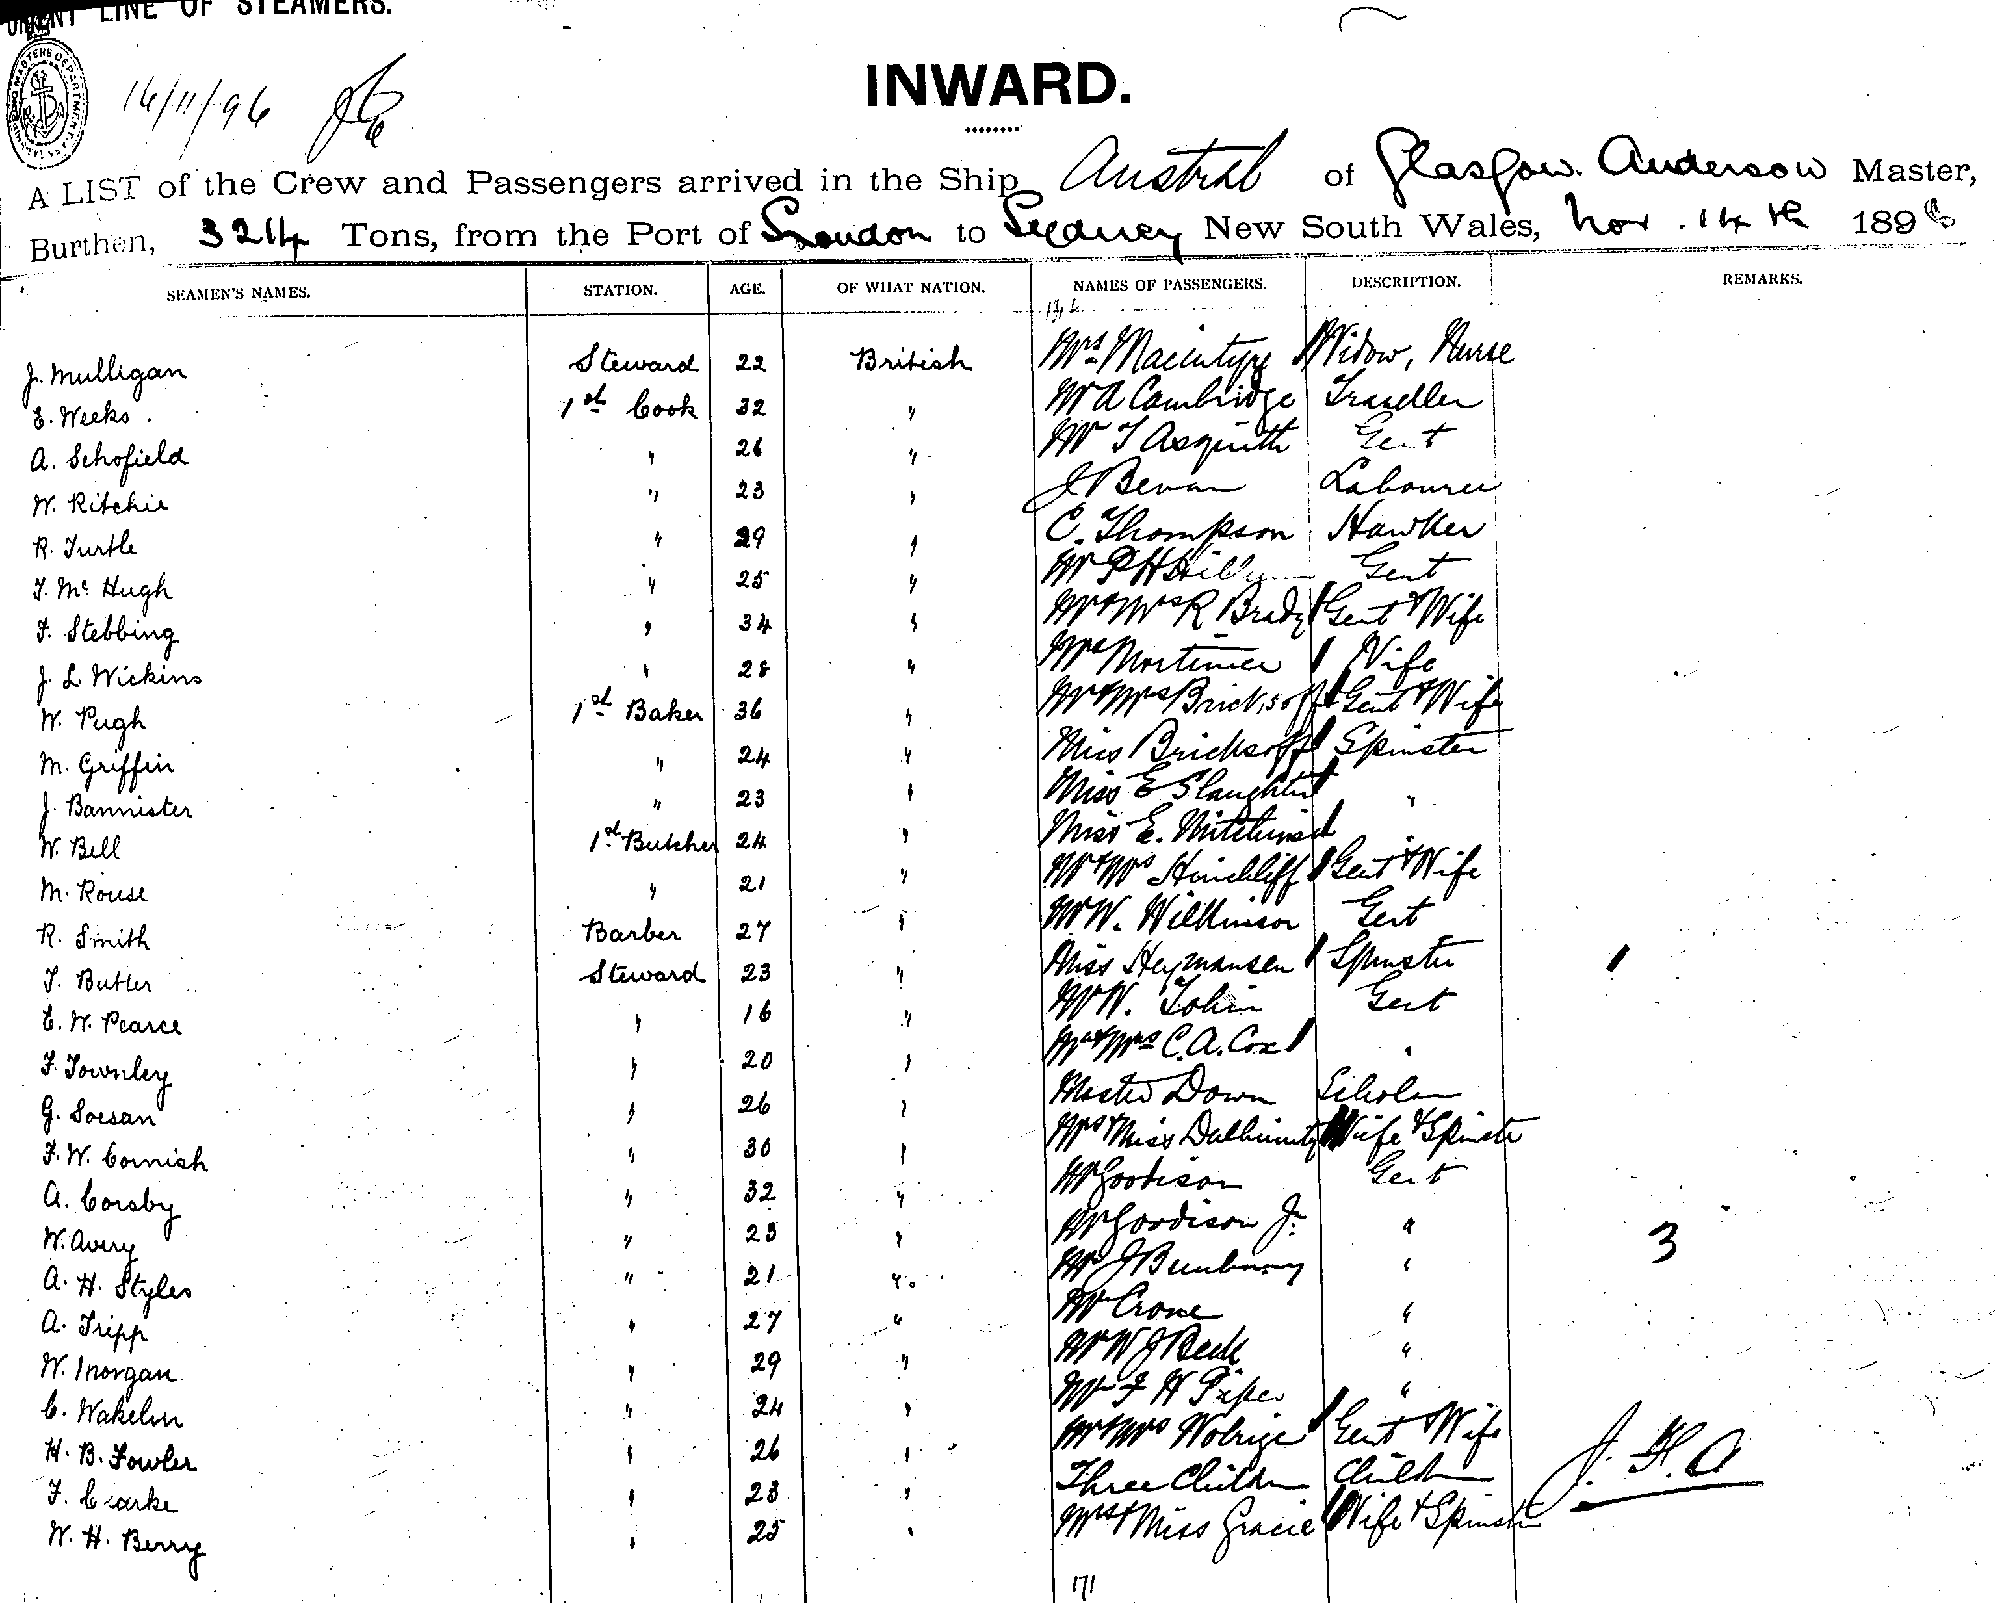 ORIENT LINE OF STEAMERS.
16/11/96
INWARD.
A LIST of the Crew and Passengers arrived in the Ship Austral of Glasgow. Anderson Master,
Burthen, 3214 Tons, from the Port of London to Sydney New South Wales, Nov. 14th 1896
SEAMEN'S NAMES. STATION. AGE. OF WHAT NATION. NAMES OF PASSENGERS. DESCRIPTION. REMARKS.
J. Mulligan Steward 22 British Mrs Macintyre Widow, Nurse
E. Weeks. 1st Cook 32 " Mr A Cambridge Traveller
A. Schofield " 26 " Mr T Asquith Gent
W. Ritchie " 23 " J Bevan Labourer
R. Turtle " 29 " C. Thompson Hawker
T. McHugh " 25 " Mr P H Gent
F. Stebbing " 34 " Mr & Mrs R Brady Gent & Wife
J. L. Wickins " 28 " Mrs Mortimer Wife
W. Pugh 1st Baker 36 " Mr & Mrs Bricksoff Gent & Wife
M. Griffin " 24 " Miss Bricksoff Spinster
J. Bannister " 23 " Miss E Slaughter "
W. Bell 1st Butcher 24 " Miss E. "
M. Rouse " 21 " Mr & Mrs Hinchliff Gent & Wife
R. Smith Barber 27 " Mr W. Wilkinson Gent
T. Butler Steward 23 " Miss Heymansen Spinster 1
E. W. Pearce " 16 " Mr W. Tobin Gent
F. Townley " 20 " Mr & Mrs C. A. Cox "
G. Soesan " 26 " Master Down Scholar
F. W. Cornish " 30 " Mrs & Miss Dalhunty Wife & Spinster
A. Corsby " 32 " Mr Goodison Gent
W. Avery " 23 " Mr Goodison Jr. " 3
A. H. Styles " 21 " Mr J Bunbury "
A. Tripp " 27 " Mr Crone "
W. Morgan " 29 " Mr W J Beck "
C. Wakelin " 24 " Mr F H Piper "
H. B. Fowler " 26 " Mr & Mrs Wolrige Gent & Wife
F. Clarke " 23 " Three Children Children J. F. A
W. H. Berry " 25 " Mrs & Miss Gracie Wife & Spinster
171